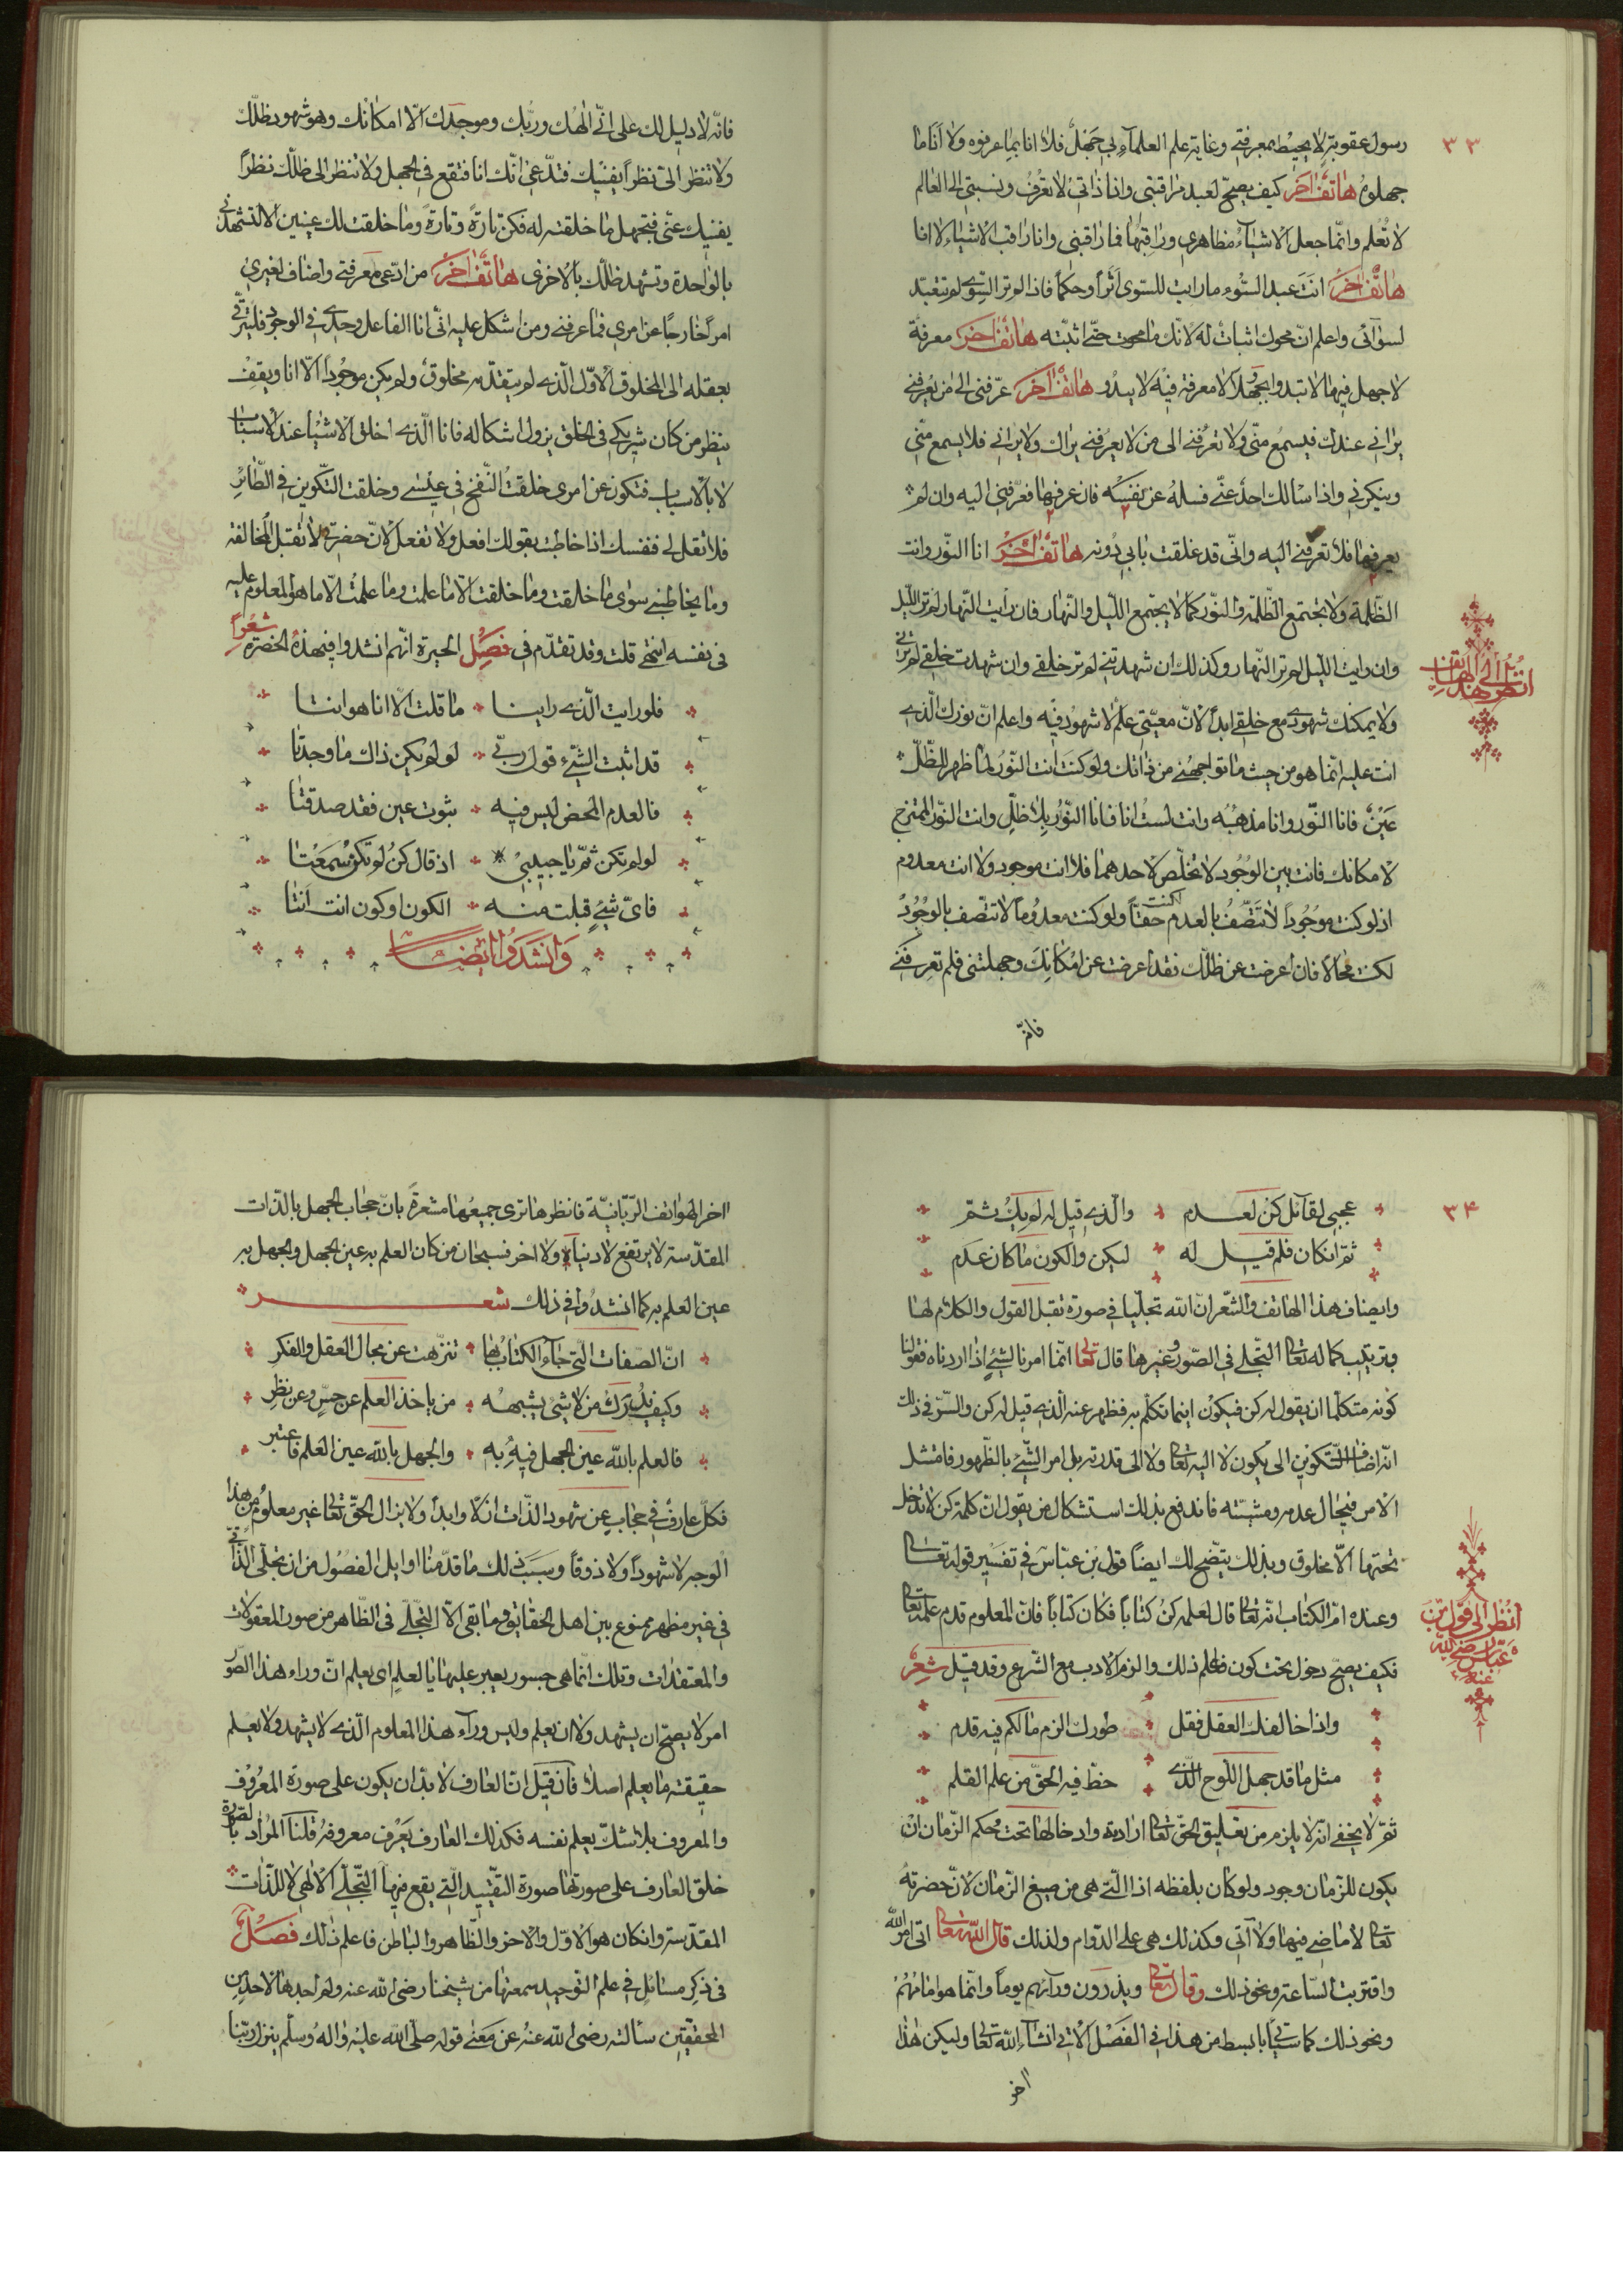 ٣٣
رسول عقوبتي لا يحيط بمعرفتي وغاية علم العلماء بي جهل فلا انا بما عرفوه ولا انا ما
جهلوه هاتف اخر كيف يصح لعبد مراقبتي وانا ذاتي لا تعرف ونسبتي الى العالم
لا تعلم وانما جعل الاشياء مظاهري وراقبها فما راقبني وانا راقب الاشياء لا انا
هاتف اخر انت عبد السوى ما رايت للسوى اثرا وحكما فاذا لم تر السوى لم تتعبد
لسوائى واعلم ان محوك اثبات له لانك ما محوت حتى اثبته هاتف اخر معرفة
لا جهل فيها لا تبدوا وجهلا لا معرفة فيه لا يبدو هاتف اخر عرفني الى من يعرفني
يراني عندك فيسمع منى ولا تعرفني الى من لا يعرفني يراك ولا يراني فلا يسمع منى
وينكرني واذا سالك احد عنى فسله عن نفسه فان عرفها فعرفني اليه وان لم
يعرفها فلا تعرفني اليه وانى قد غلقت بابي دونه هاتف اخر انا النور وانت
الظلمة ولا تجتمع الظلمة والنور كما لا يجتمع الليل والنهار فان رايت النهار لم تر الليل
انظر الى هذا الهاتف
وان رايت الليل لم تر النهار وكذلك ان شهدتني لم تر خلقي وان شهدت خلقي لم ترنى
ولا يمكنك شهودى مع خلقي ابدا لان معيتي علم لا شهود فيه واعلم ان نورك الذي
انت عليه انما هو من حيث ما تواجهني من ذاتك ولو كنت انت النور لما ظهر للظل
عين فانا النور وانا مذهبه وانت لست انا فانا النور بلا ظل وانت النور الممتزج
لامكانك فانت بين الوجود لا تخلص لاحدهما فلا انت موجود ولا انت معدوم
اذ لو كنت موجودا لا تتصف بالعدم لكنت حقا ولو كنت معدوما لا تتصف بالوجود
لكنت محالا فان اعرضت عن ظلك فقد اعرضت عن امكانك وجهلتنى فلم تعرفني
فانه
فانه لا دليل لك على انى الهك وربك وموجدك الا امكانك وهو شهود ظلك
ولا تنظر الى نظرا يفنيك فتدعى انك انا فتقع في الجهل ولا تنظر الى ظلك نظرا
يفنيك عنى فتجهل ما خلقته له فكن تارة وتارة وما خلقت لك عينين الا لتشهدني
بالواحدة وتشهد ظلك بالاخرى هاتف اخر من ادعى معرفتي واضاف لغيري
امرا خارجا عن امري فما عرفني ومن اشكل عليه انى انا الفاعل وحدى في الوجود فليترقى
بعقله الى المخلوق الاول الذي لم يتقدمه مخلوق ولم يكن موجودا الا انا ويقف
ينظر من كان شريكي في الخلق يزول اشكاله فانا الذي اخلق الاشياء عند الاسباب
لا بالاسباب فتكون عن امرى خلقت النفخ في عيسى وخلقت التكوين في الطائر
فلا تقل لي ففسك اذا خاطبت بقولك افعل ولا تفعل لان حضرتي لا تقبل المخالفة
وما يخاطبني سوى ما خلقت وما خلقت الا ما علمت وما علمت الا ما هو المعلوم عليه
فى نفسه انتهى قلت وقد تقدم في فصل الحيرة انهم انشدوا في هذه الحضرة شعرا
فلو رايت الذي راينا ما قلت الا انا هو انتا
قد اثبت الشيء قول ربي لو لم يكن ذاك ما وجدتا
فالعدم المحض ليس فيه ثبوت عين فقد صدقتا
لو لم تكن ثم يا حبيبي اذ قال كن لم تكن سمعتا
فاى شئ قبلت منه الكون او كون انت انتا
وانشدوا ايضا
٣٤
عجبي لقائل كن لعدم والذي قيل له لم يك ثم
ثم ان كان فلم قيل له ليكن والكون ما كان عدم
وايضاف هذا الهاتف والشعر ان الله تجليا في صورة تقبل القول والكلام لها
وترتيب كما له تعالى التجلي في الصور وغيرها قال تعالى انما امرنا لشئ اذا اردناه فقولنا
كونه متكلما ان يقول له كن فيكون اينما تكلم به فظهر عنه الذي قيل له كن والسر في ذلك
انه اضاف التكوين الى يكون لا اليه تعالى ولا الى قدرته بل امر الشئ بالظهور فامتثل
الامر في حال عدمه ومشيته فاندفع بذلك استشكال من يقول ان كلمة كن لا تدخل
تحتها الا مخلوق وبذلك يتضح لك ايضا قول بن عباس في تفسير قوله تعالى
وعنده ام الكتاب انه تعالى قال لعلمه كن كتابا فكان كتابا فان المعلوم قدم علمه تعالى
انظر الى قول بن عباس رضي الله عنه
فكيف يصح دخول تحت كون فاعلم ذلك والزم الادب مع الشرع وقد قيل شعر
واذا خالفك العقل فقل طورك الزم مالكم فيه قدم
مثل ما قد جهل اللوح الذي خط فيه الحق من علم القلم
ثم لا يخفى انه لا يلزم من تعليق الحق تعالى ارادته وادخالها تحت حكم الزمان ان
يكون للزمان وجود ولو كان بلفظه اذا التي هي من صيغ الزمان لان حضرته
تعالى لا ماضي فيها ولا آتي وكذلك هي على الدوام ولذلك قال الله تعالى اتى امر الله
واقتربت الساعة ونحو ذلك وقال تعالى ويذرون ورآءهم يوما وانما هو امامهم
ونحو ذلك كما سيئ بابسط من هذا في الفصل الآتي انشآء الله تعالى وليكن هذا
اخر
اخر الهواتف الربانية فانظرها ترى جميعها مشعرة بان حجاب الجهل بالذات
المقدسة لا يرتفع لا دنيا ولا اخر فسبحان من كان العلم به عين الجهل والجهل به
عين العلم به كما انشدوا في ذلك شعر
ان الصفات التي جاء الكتاب بها تنزهت عن مجال العقل والفكر
وكيف يدرك من لا شئ يشبهه من ياخذ العلم عن حس وعن نظر
فالعلم بالله عين الجهل فيه به والجهل بالله عين العلم فاعتبر
فكل عارف في حجاب عن شهود الذات ازلا وابدا ولا يزال الحق تعالى غير معلوم من هذا
الوجه لا شهودا ولا ذوقا وسبب ذلك ما قدمنا اوايل الفصول من ان تجلى الذاتي
في غير مظهر ممنوع بين اهل الحقايق وما بقى الا التجلي فى الظاهر من صور المعقولات
والمعتقدات وتلك انما هى جسور يعبر عليها يا العلم اى يعلم ان وراء هذا الصور
امر لا يصح ان يشهد ولا ان يعلم وليس ورآء هذا المعلوم الذي لا يشهد ولا يعلم
حقيقته ما يعلم اصلا فان قيل ان العارف لا بد ان يكون على صورة المعروف
والمعروف بلا شك يعلم نفسه فكذلك العارف يعرف معروفه قلنا المراد بالصورة
خلق العارف على صورتها صورة التقييد التي يقع فيها التجلي الالهي لا للذات
المقدسة وان كان هو الاول والاخر والظاهر والباطن فاعلم ذلك فصل
فى ذكر مسائل في علم التوحيد سمعتها من شيخنا رضى الله عنه ولم اجدها لاحد من
المحققين سألته رضى الله عنه عن معنى قوله صلى الله عليه واله وسلم ينزل ربنا